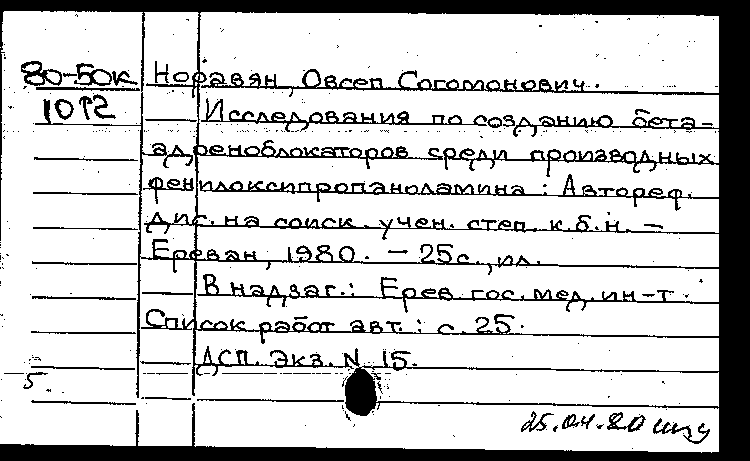 80-50к Норавян, Овсеп Согомонович.
1012 Исследования по созданию бета-
адреноблокаторов среди производных
фенилоксипропаноламина : Автореф.
дис. на соиск. учен. степ. к.б.н. –
Ереван, 1980. – 25с., ил.
В надзаг.: Ерев. гос. мед. ин-т.
Список работ авт. : с. 25.
ДСП. Экз. N 15.
5.
25.04.80